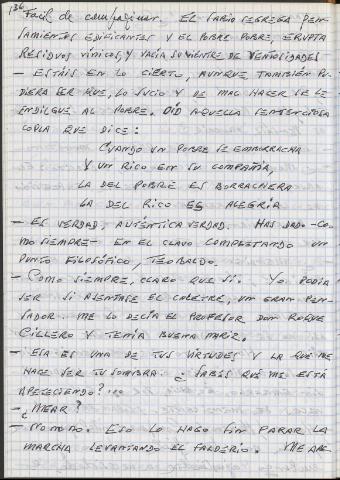 136
Fácil de compaginar. El sabio segrega pen-
samientos edificantes y el pobre pobre, erupta
residuos vínicos, y vacía su vientre de ventosidades
— Estáis en lo cierto, aunque también pu-
diera ser que, lo sucio y de mal hacer se le
endilgue al pobre. Oíd aquella sentenciosa
copla que dice:
Cuando un pobre se emborracha
y un rico en su compañía,
la del pobre es borrachera
la del rico es alegría
— Es verdad, auténtica verdad. Has dado -co-
mo siempre- en el clavo completando un
punto filosófico, Teobaldo.
— Como siempre, claro que sí. Yo podía
ser si asentase el caletre, un gran pen-
sador. Me lo decía el profesor don Roque
Cillero y tenía buena nariz.
— Esa es una de tus virtudes y la que me
hace ser tu sombra. ¿Sabes qué me está
apeteciendo?...
— ¿Mear?
— No no no. Eso lo hago sin parar la
marcha levantando el falderío. Me ape